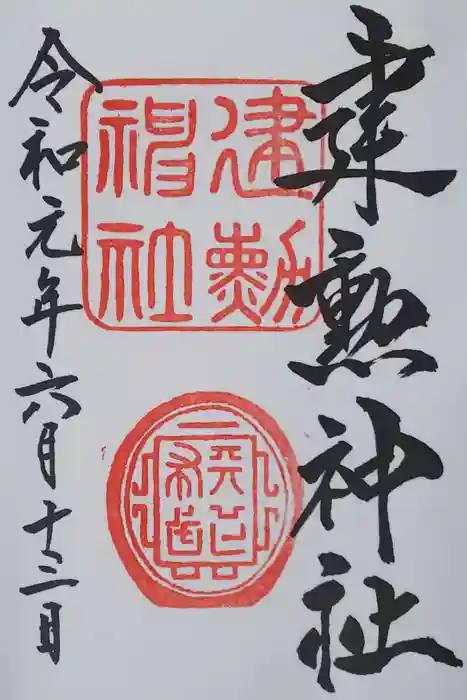 建勲神社
建勲
神社
令和元年六月十三日